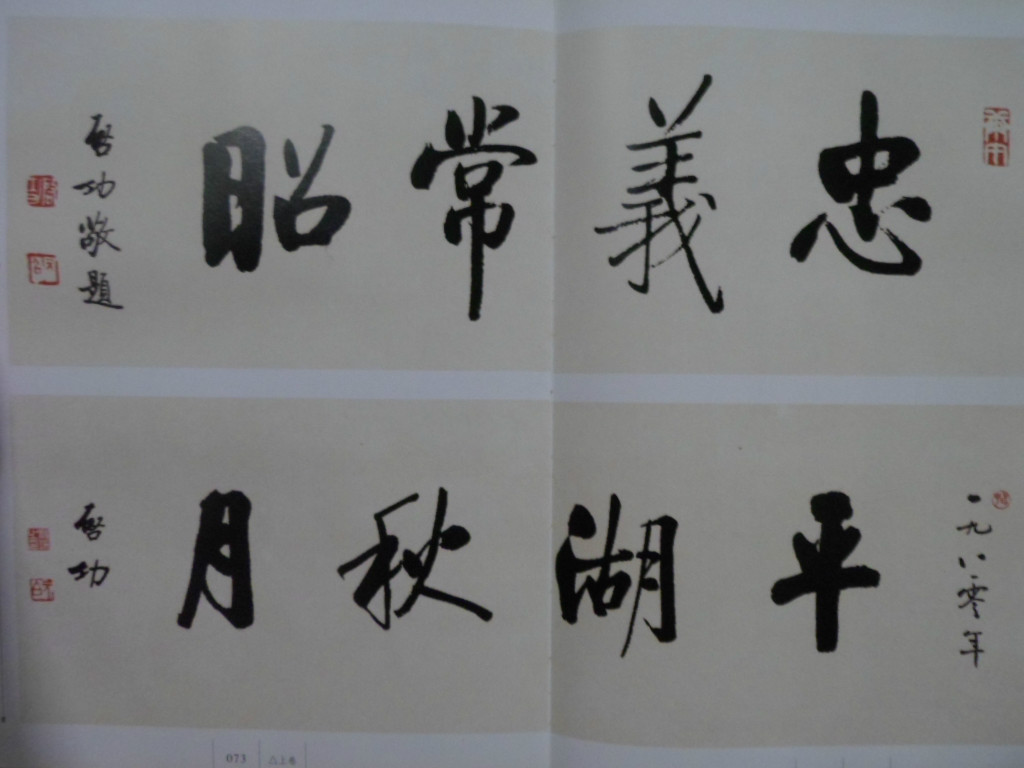 忠義常昭
啓功敬題
一九八零年
平湖秋月
啓功
073